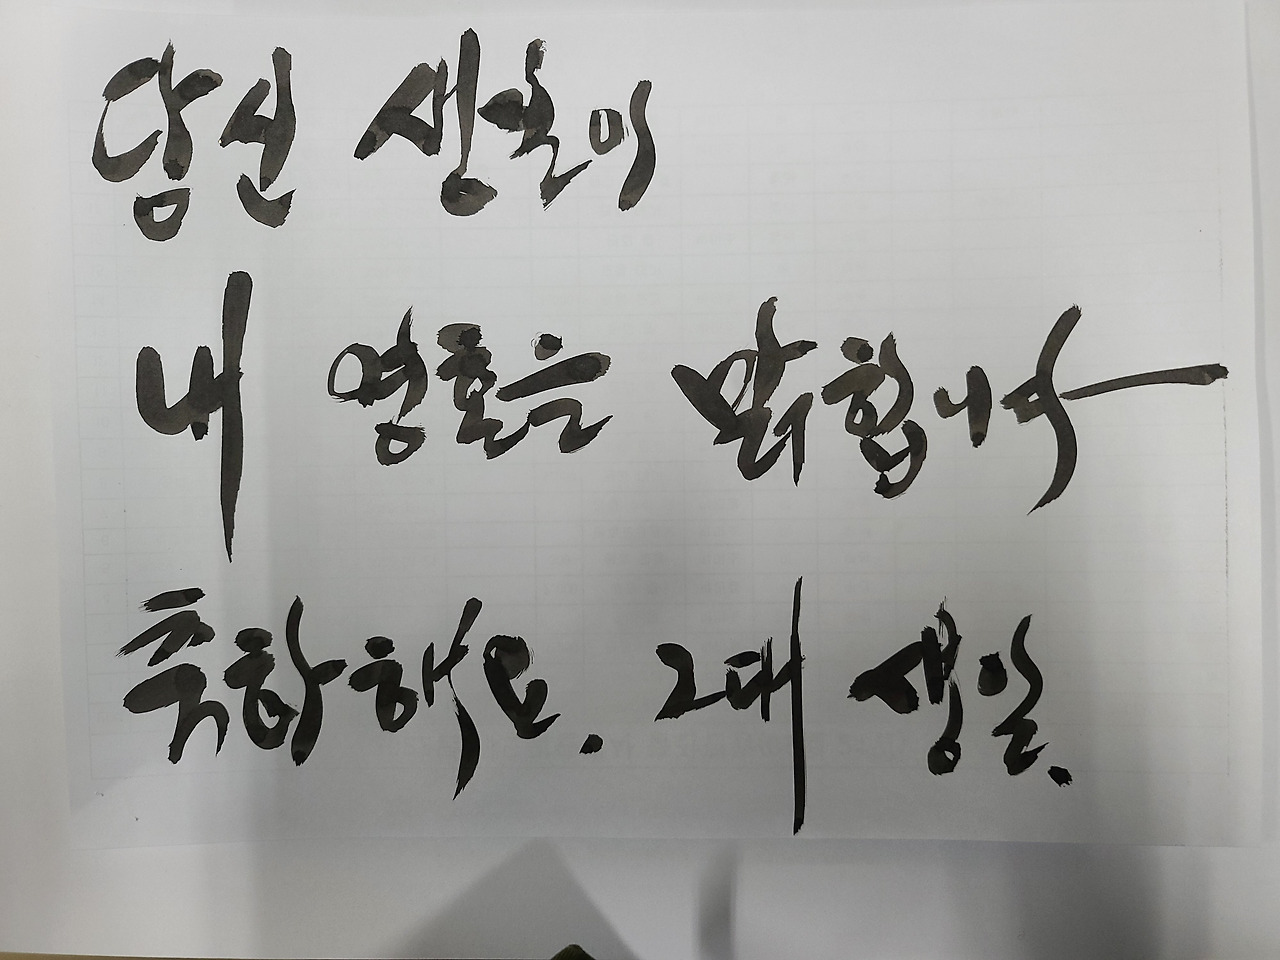 당신 생일이
내 영혼을 맑힙니다
축하해요. 그대 생일.